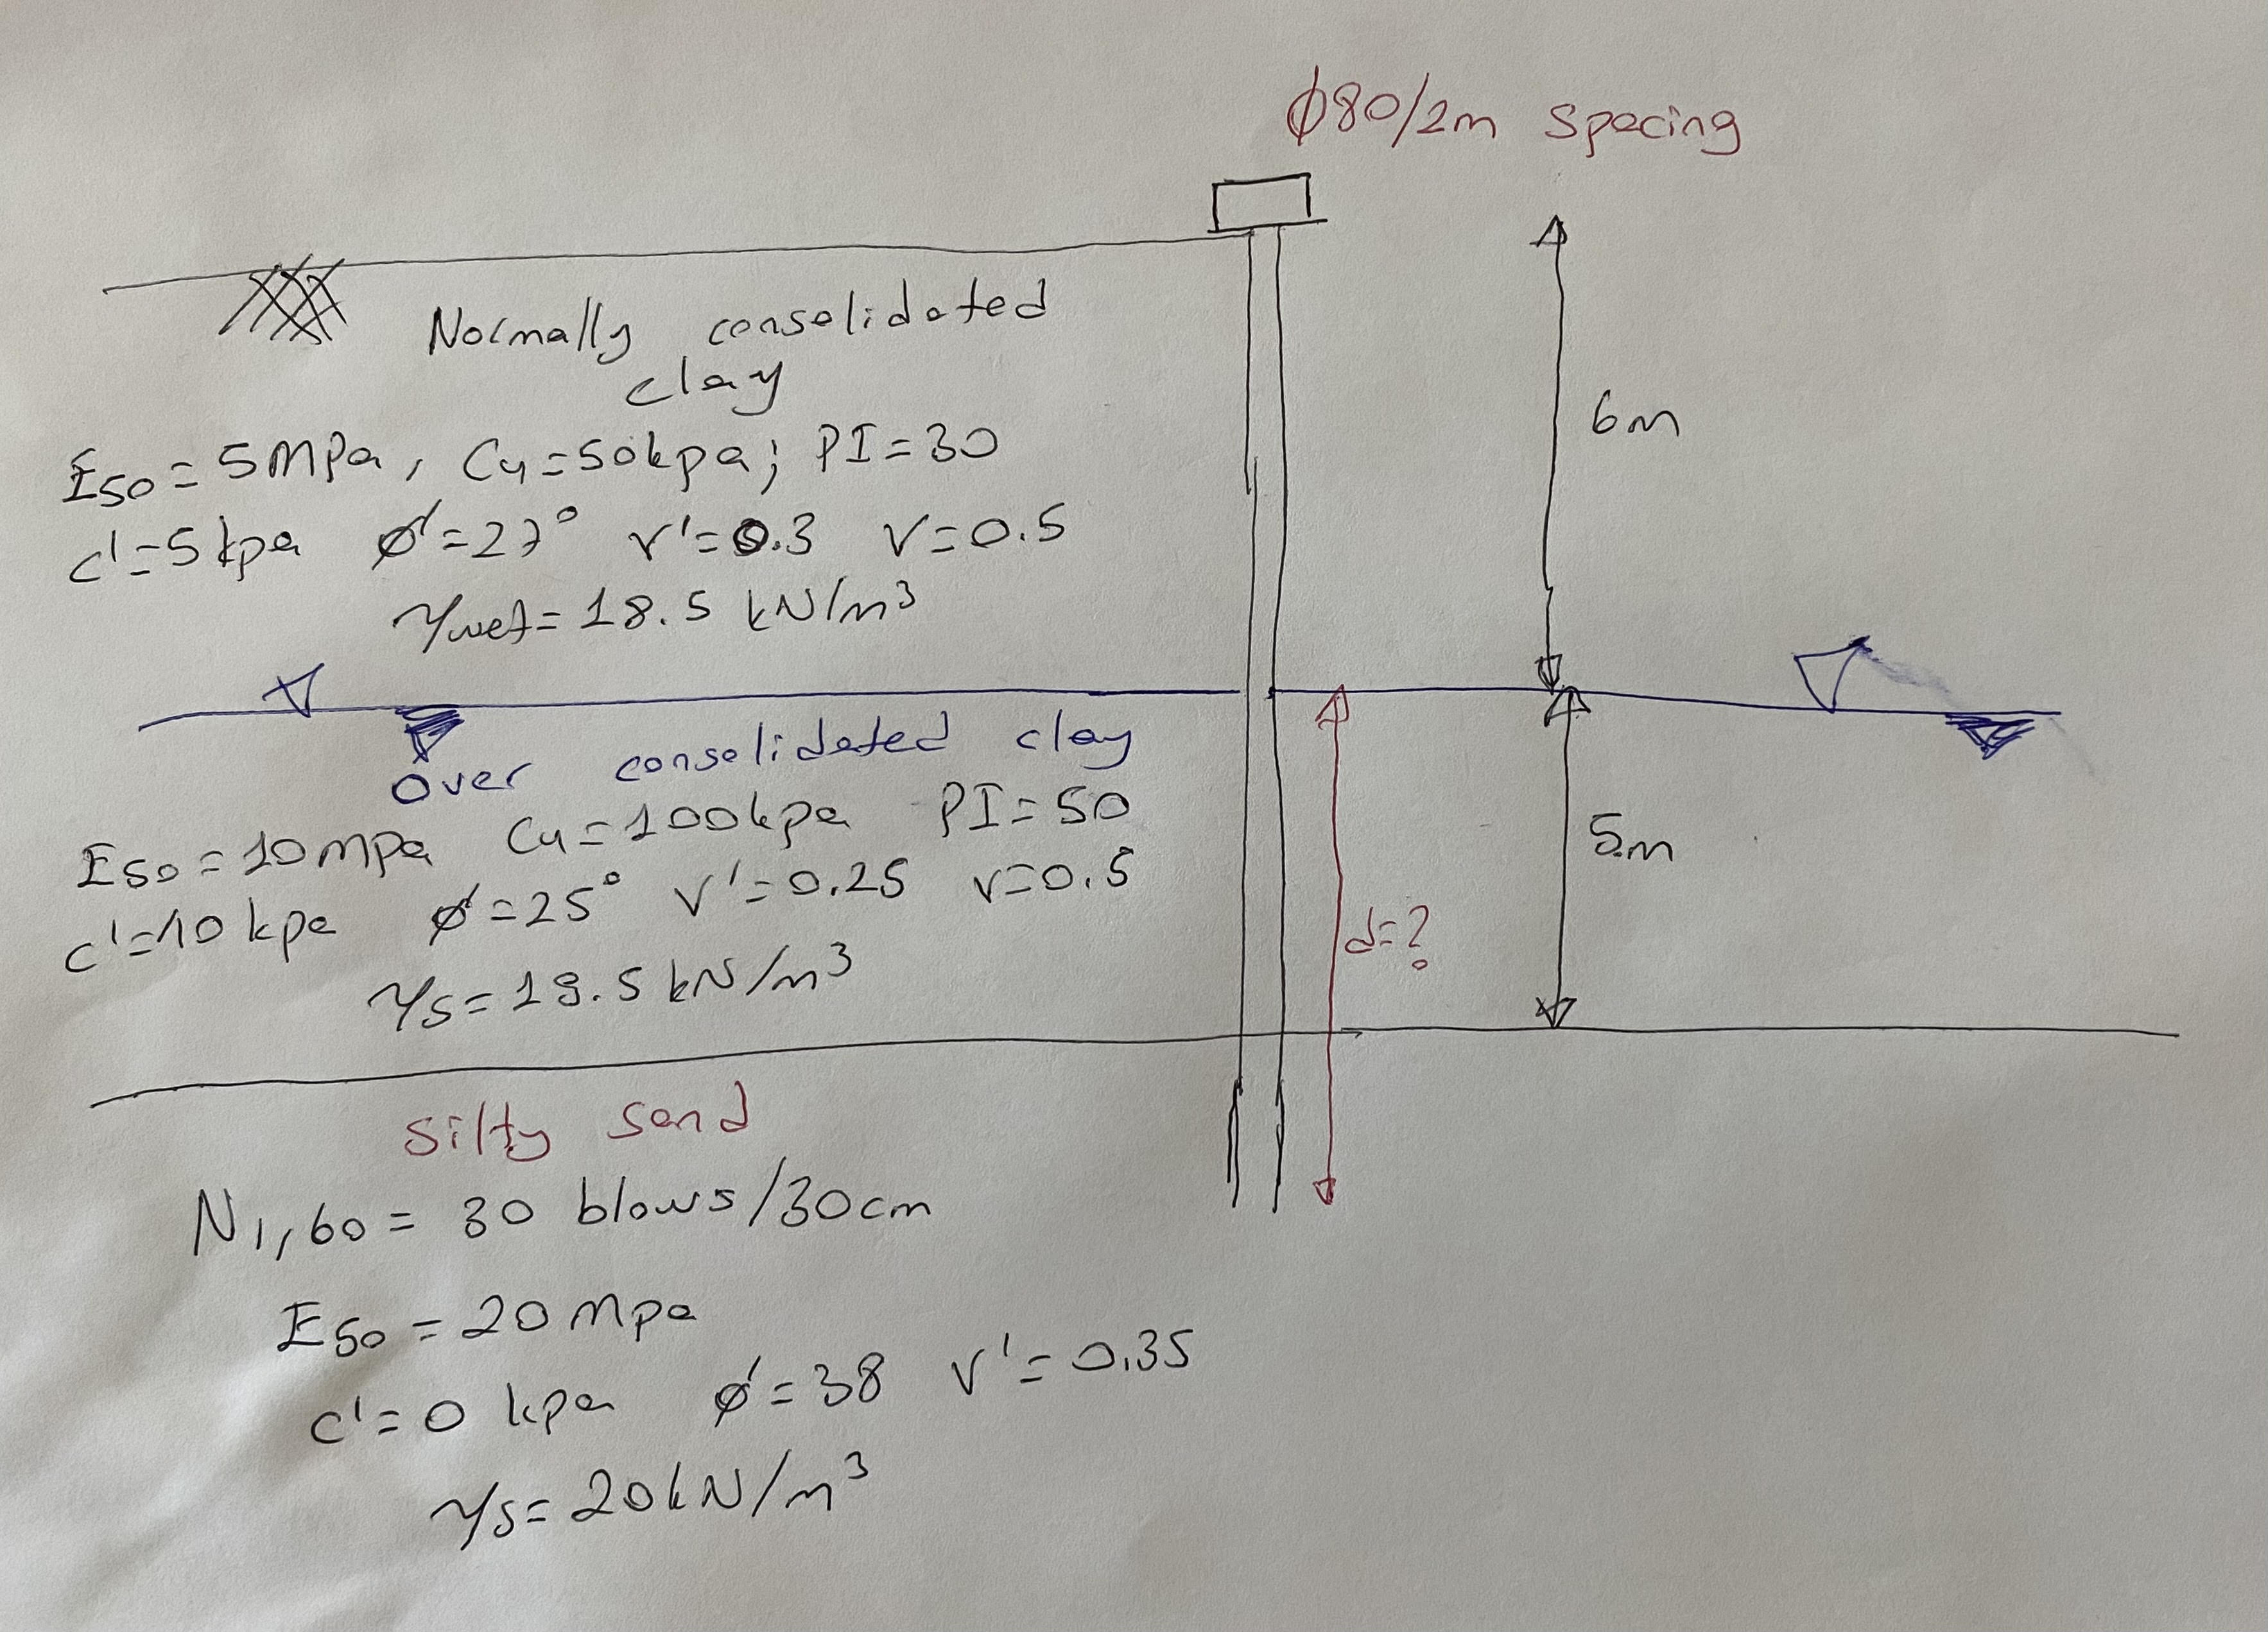 ϕ80/2m spacing
Normally consolidated
clay
E50 = 5MPa, Cu=50kpa; PI=30
c'=5kpa ϕ'=27° ν'=0.3 ν=0.5
γwet=18.5 kN/m³
6m
Over consolidated clay
E50=10mpa Cu=100kpa PI=50
c'=10kpa ϕ'=25° ν'=0.25 ν=0.5
γs=19.5 kN/m³
5m
d=?
Silty sand
N1,60 = 30 blows/30cm
E50=20mpa
c'=0 kpa ϕ'=38 ν'=0.35
γs=20kN/m³